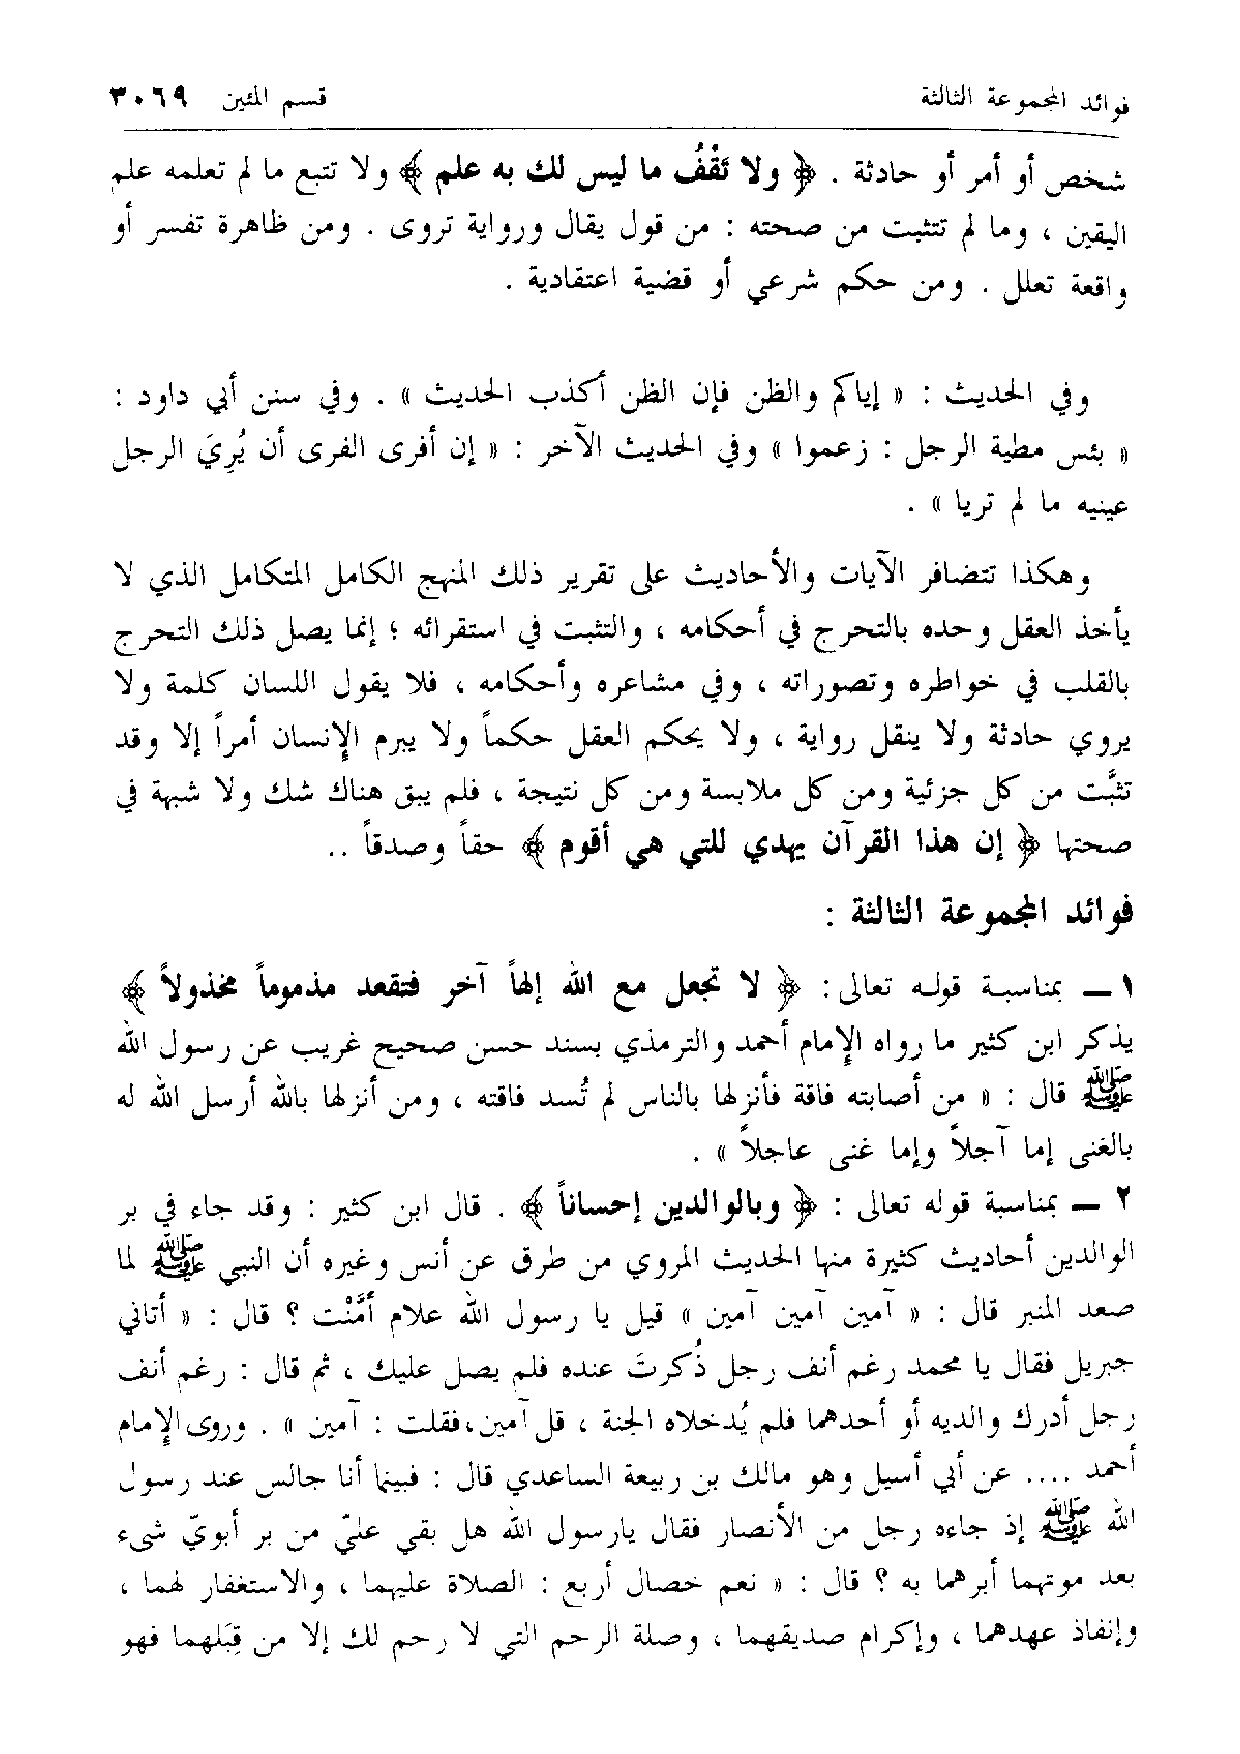 فوائد المجموعة الثالثة قسم المئين ٣٠٦٩
شخص أو أمر أو حادثة . ﴿ ولا تَقْفُ ما ليس لك به علم ﴾ ولا تتبع ما لم تعلمه علم
اليقين ، وما لم تتثبت من صحته : من قول يقال ورواية تروى . ومن ظاهرة تفسر أو
واقعة تعلل . ومن حكم شرعي أو قضية اعتقادية .
وفي الحديث : « إياكم والظن فإن الظن أكذب الحديث » . وفي سنن أبي داود :
« بئس مطية الرجل : زعموا » وفي الحديث الآخر : « إن أفرى الفرى أن يُرِيَ الرجل
عينيه ما لم تريا » .
وهكذا تتضافر الآيات والأحاديث على تقرير ذلك المنهج الكامل المتكامل الذي لا
يأخذ العقل وحده بالتحرج في أحكامه ، والتثبت في استقرائه ؛ إنما يصل ذلك التحرج
بالقلب في خواطره وتصوراته ، وفي مشاعره وأحكامه ، فلا يقول اللسان كلمة ولا
يروي حادثة ولا ينقل رواية ، ولا يحكم العقل حكماً ولا يبرم الإنسان أمراً إلا وقد
تثبَّت من كل جزئية ومن كل ملابسة ومن كل نتيجة ، فلم يبق هناك شك ولا شبهة في
صحتها ﴿ إن هذا القرآن يهدي للتي هي أقوم ﴾ حقاً وصدقاً ..
فوائد المجموعة الثالثة :
١ ــ بمناسبة قوله تعالى : ﴿ لا تجعل مع الله إلهاً آخر فتقعد مذموماً مخذولاً ﴾
يذكر ابن كثير ما رواه الإمام أحمد والترمذي بسند حسن صحيح غريب عن رسول الله
ﷺ قال : « من أصابته فاقة فأنزلها بالناس لم تُسد فاقته ، ومن أنزلها بالله أرسل الله له
بالغنى إما آجلاً وإما غنى عاجلاً » .
٢ ــ بمناسبة قوله تعالى : ﴿ وبالوالدين إحساناً ﴾ . قال ابن كثير : وقد جاء في بر
الوالدين أحاديث كثيرة منها الحديث المروي من طرق عن أنس وغيره أن النبي ﷺ لما
صعد المنبر قال : « آمين آمين آمين » قيل يا رسول الله علام أمَّنْت ؟ قال : « أتاني
جبريل فقال يا محمد رغم أنف رجل ذُكرتَ عنده فلم يصل عليك ، ثم قال : رغم أنف
رجل أدرك والديه أو أحدهما فلم يُدخلاه الجنة ، قل آمين، فقلت : آمين » . وروى الإمام
أحمد .... عن أبي أسيل وهو مالك بن ربيعة الساعدي قال : فبينما أنا جالس عند رسول
الله ﷺ إذ جاءه رجل من الأنصار فقال يارسول الله هل بقي عليّ من بر أبويّ شىء
بعد موتهما أبرهما به ؟ قال : « نعم خصال أربع : الصلاة عليهما ، والاستغفار لهما ،
وإنفاذ عهدهما ، وإكرام صديقهما ، وصلة الرحم التي لا رحم لك إلا من قِبَلهما فهو